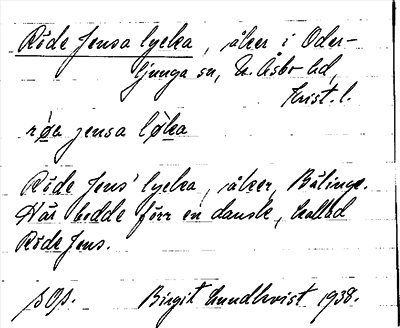 Röde Jensa lycka, åker i Oder-
ljunga sn, N. Åsbo hd,
Krist. l.
röa jensa løka
Röde Jens' lycka, åker, Bälinge.
Här bodde förr en dansk, kallad
Röde Jens.
s. 01. Birgit Lundkvist 1938.